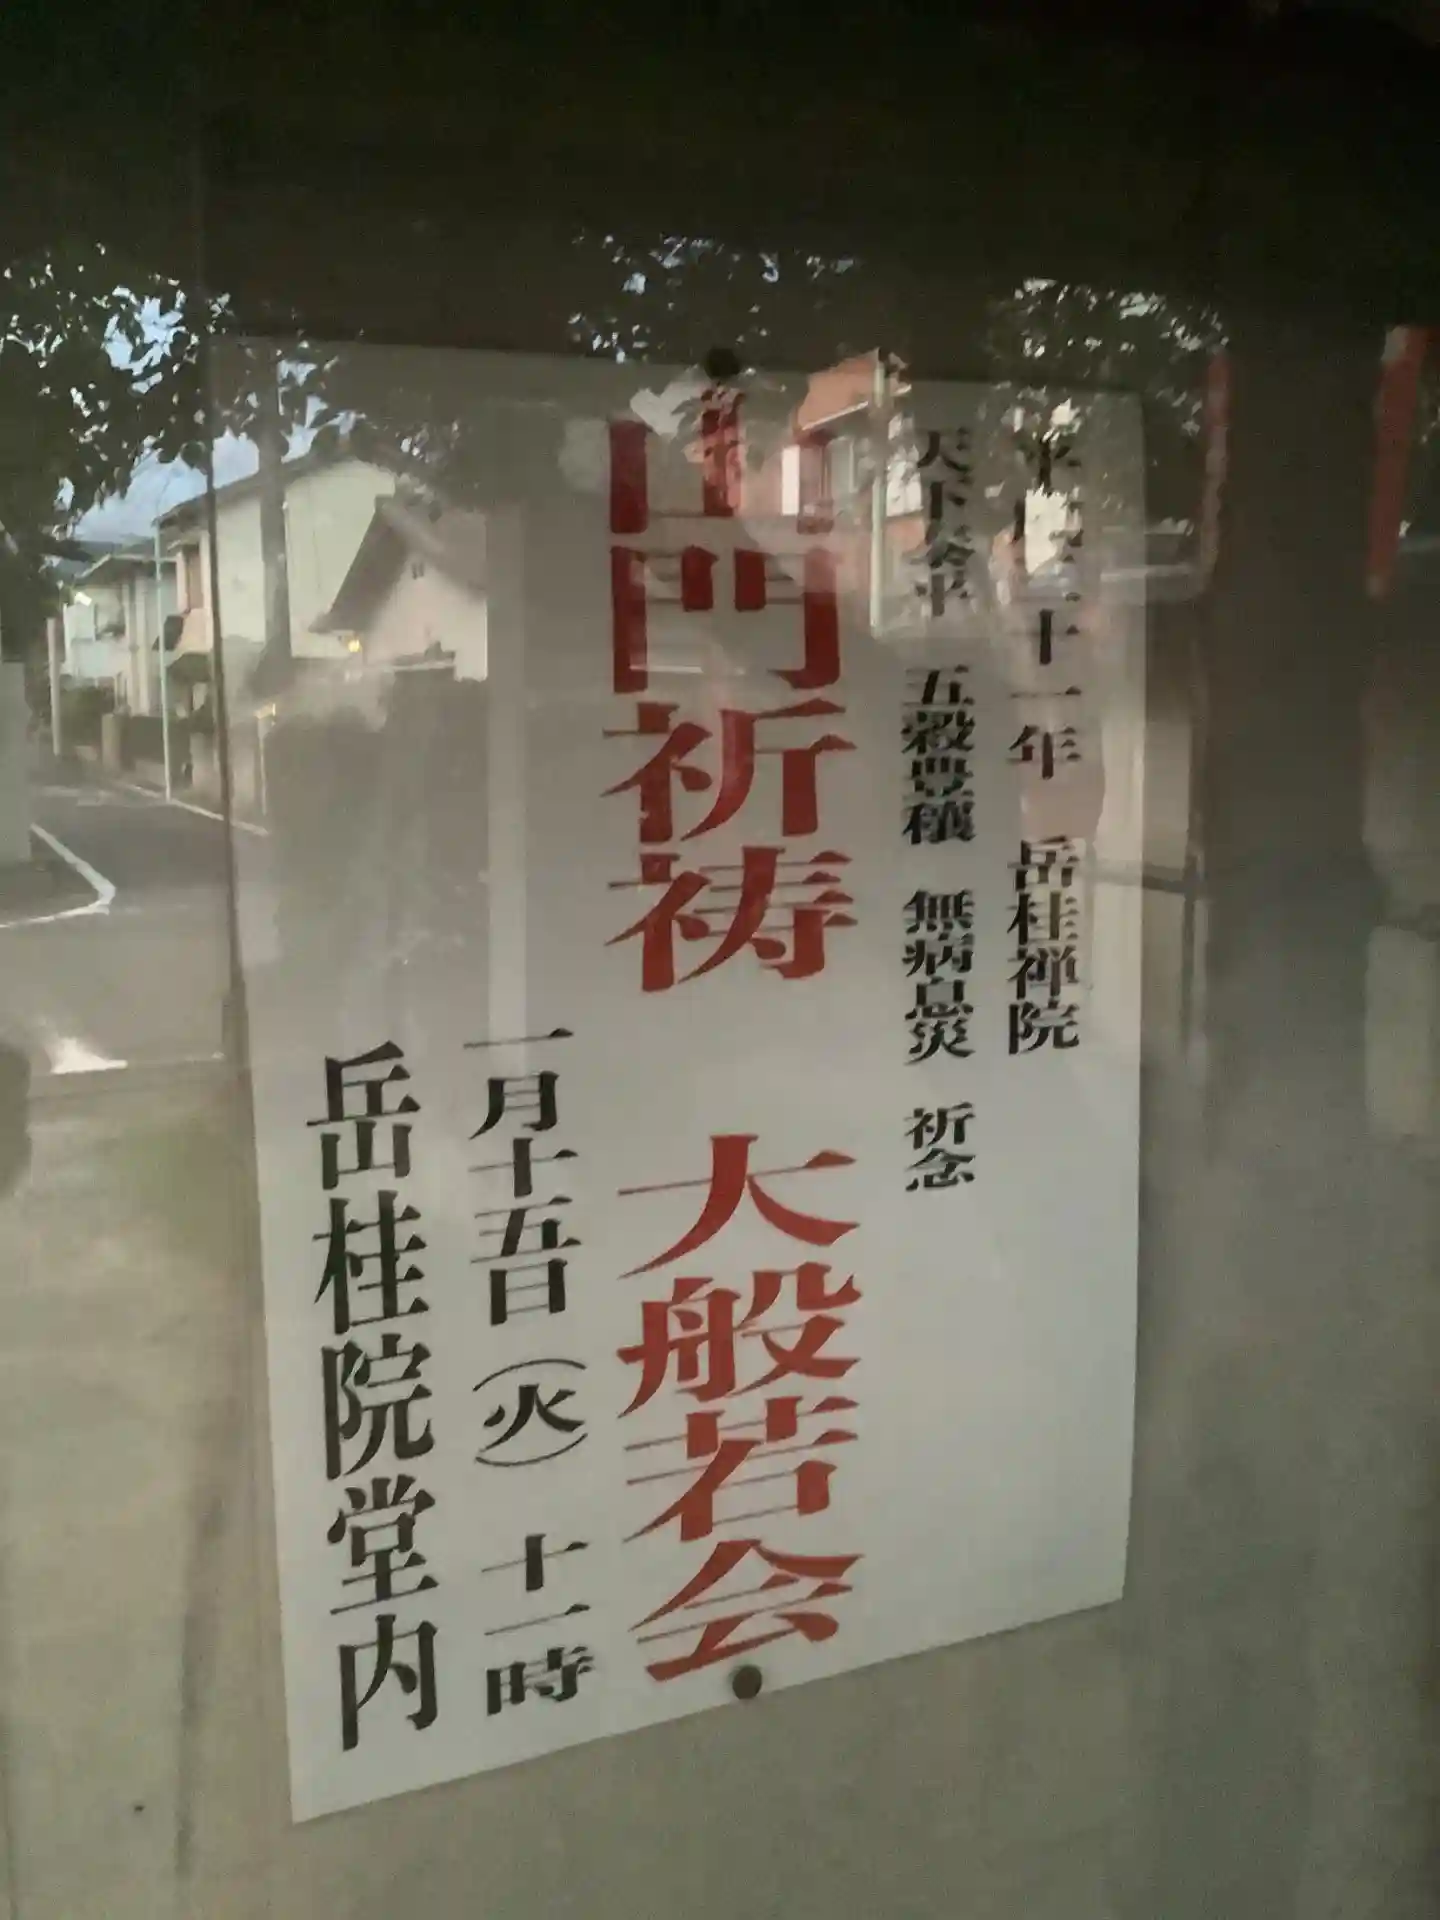 平成三十一年 岳桂禅院
天下泰平 五穀豊穣 無病息災 祈念
山門祈祷 大般若会
一月十五日(火) 十一時
岳桂院堂内